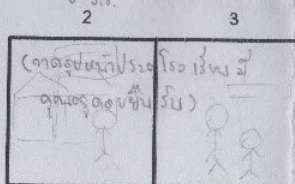 2 3
(วาดรูปหน้าประตูโรงเรียน มี
คุณครูคอยยืนรับ)